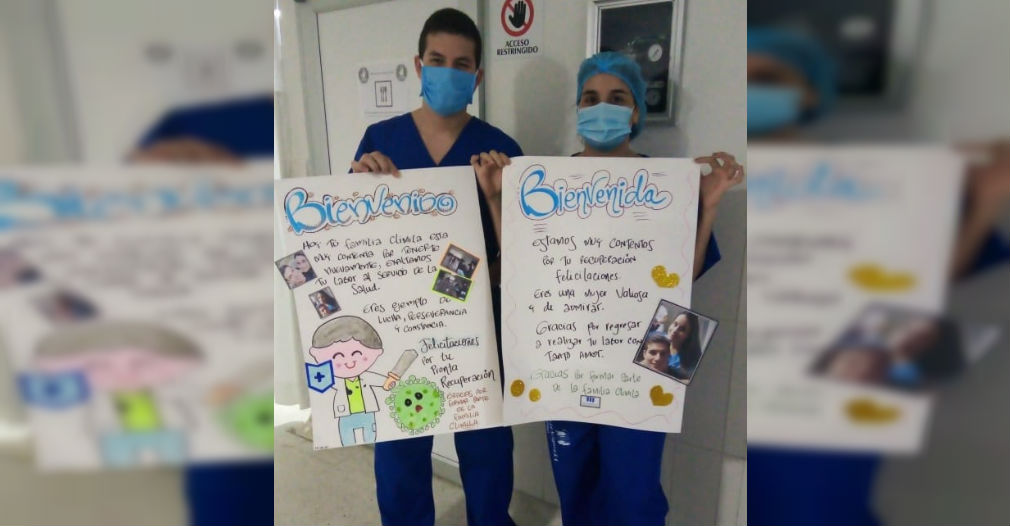 ACCESO
RESTRINGIDO
Bienvenido
Hoy tu familia Climila esta
muy contenta por tenerte
nuevamente, exaltamos
tu labor al servicio de la
Salud.
Eres ejemplo de
lucha, perseverancia
y constancia.
Felicitaciones
por tu
pronta
Recuperación
Gracias por
formar parte
de la
familia
Climila
Bienvenida
estamos muy contentos
por tu recuperación
felicitaciones.
Eres una mujer valiosa
y de admirar.
Gracias por regresar
a realizar tu labor con
tanto amor.
Gracias por formar parte
de la familia Climila